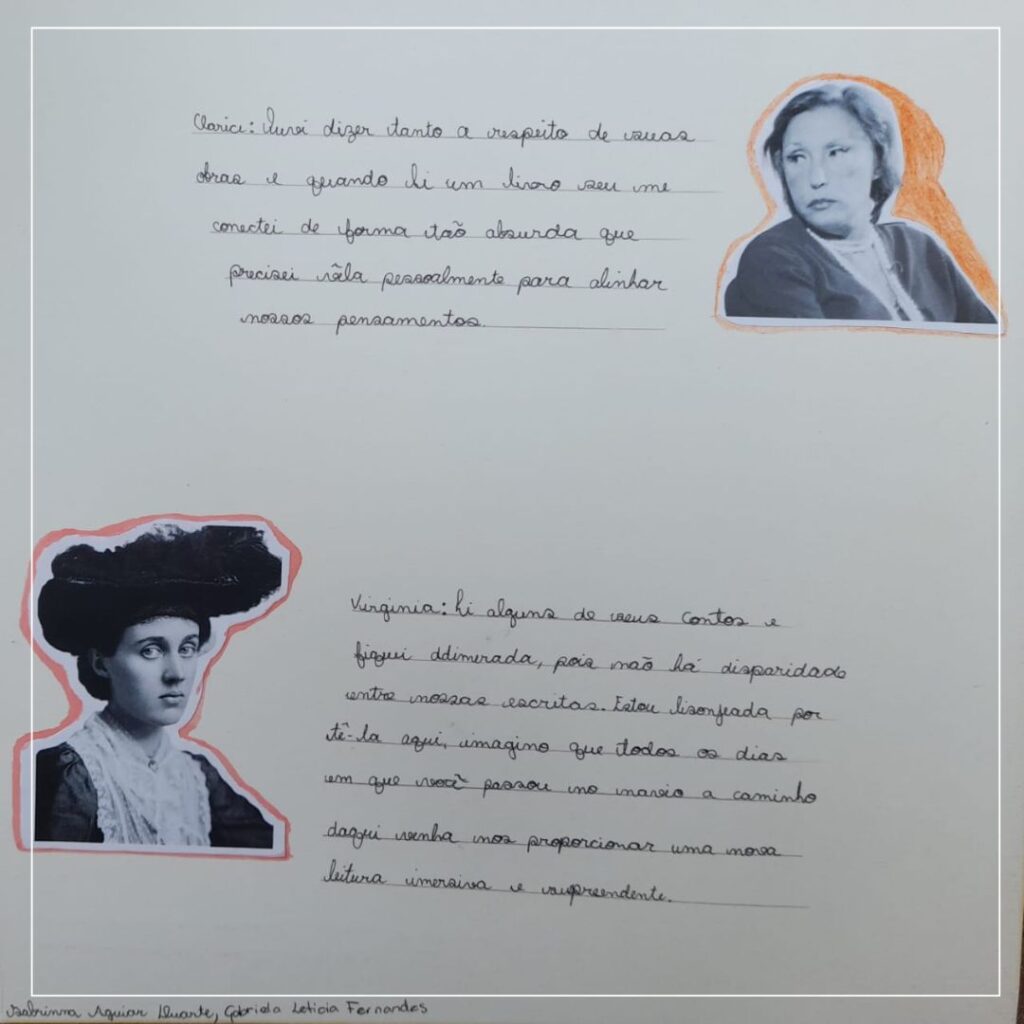 Clarice: Ouvi dizer tanto a respeito de suas
obras e quando li um livro seu me
conectei de forma tão absurda que
precisei vêla pessoalmente para alinhar
nossos pensamentos.
Virginia: Li alguns de seus contos e
fiquei ddimirada, pois não há disparidade
entre nossas escritas. Estou lisonjeada por
tê-la aqui, imagino que todos os dias
em que você passou no navio a caminho
daqui venha nos proporcionar uma nova
leitura imersiva e surpreendente.
Sabrinna Aguiar Duarte, Gabriela Leticia Fernandes